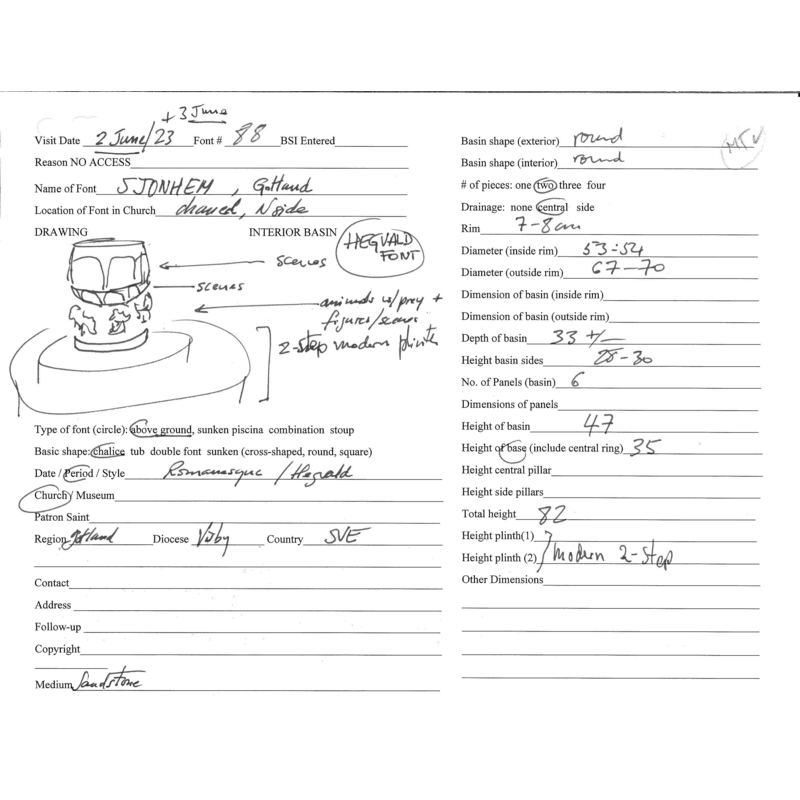 + 3 June
Visit Date 2 June/23 Font # 88 BSI Entered
Reason NO ACCESS
Name of Font SJONHEM, Gotland
Location of Font in Church chancel, N side
DRAWING INTERIOR BASIN HEGVALD FONT
scenes
scenes
animals w/ prey +
figures/scenes
2-step modern plinth
Type of font (circle): above ground, sunken piscina combination stoup
Basic shape: chalice tub double font sunken (cross-shaped, round, square)
Date / Period / Style Romanesque / Hegvald
Church / Museum
Patron Saint
Region Gotland Diocese Visby Country SVE
Contact
Address
Follow-up
Copyright
Medium Sandstone
Basin shape (exterior) round
Basin shape (interior) round
# of pieces: one two three four
Drainage: none central side
Rim 7-8 cm
Diameter (inside rim) 53-54
Diameter (outside rim) 67-70
Dimension of basin (inside rim)
Dimension of basin (outside rim)
Depth of basin 33 +/-
Height basin sides 28-30
No. of Panels (basin) 6
Dimensions of panels
Height of basin 47
Height of base (include central ring) 35
Height central pillar
Height side pillars
Total height 82
Height plinth(1)
Height plinth (2) Modern 2-step
Other Dimensions